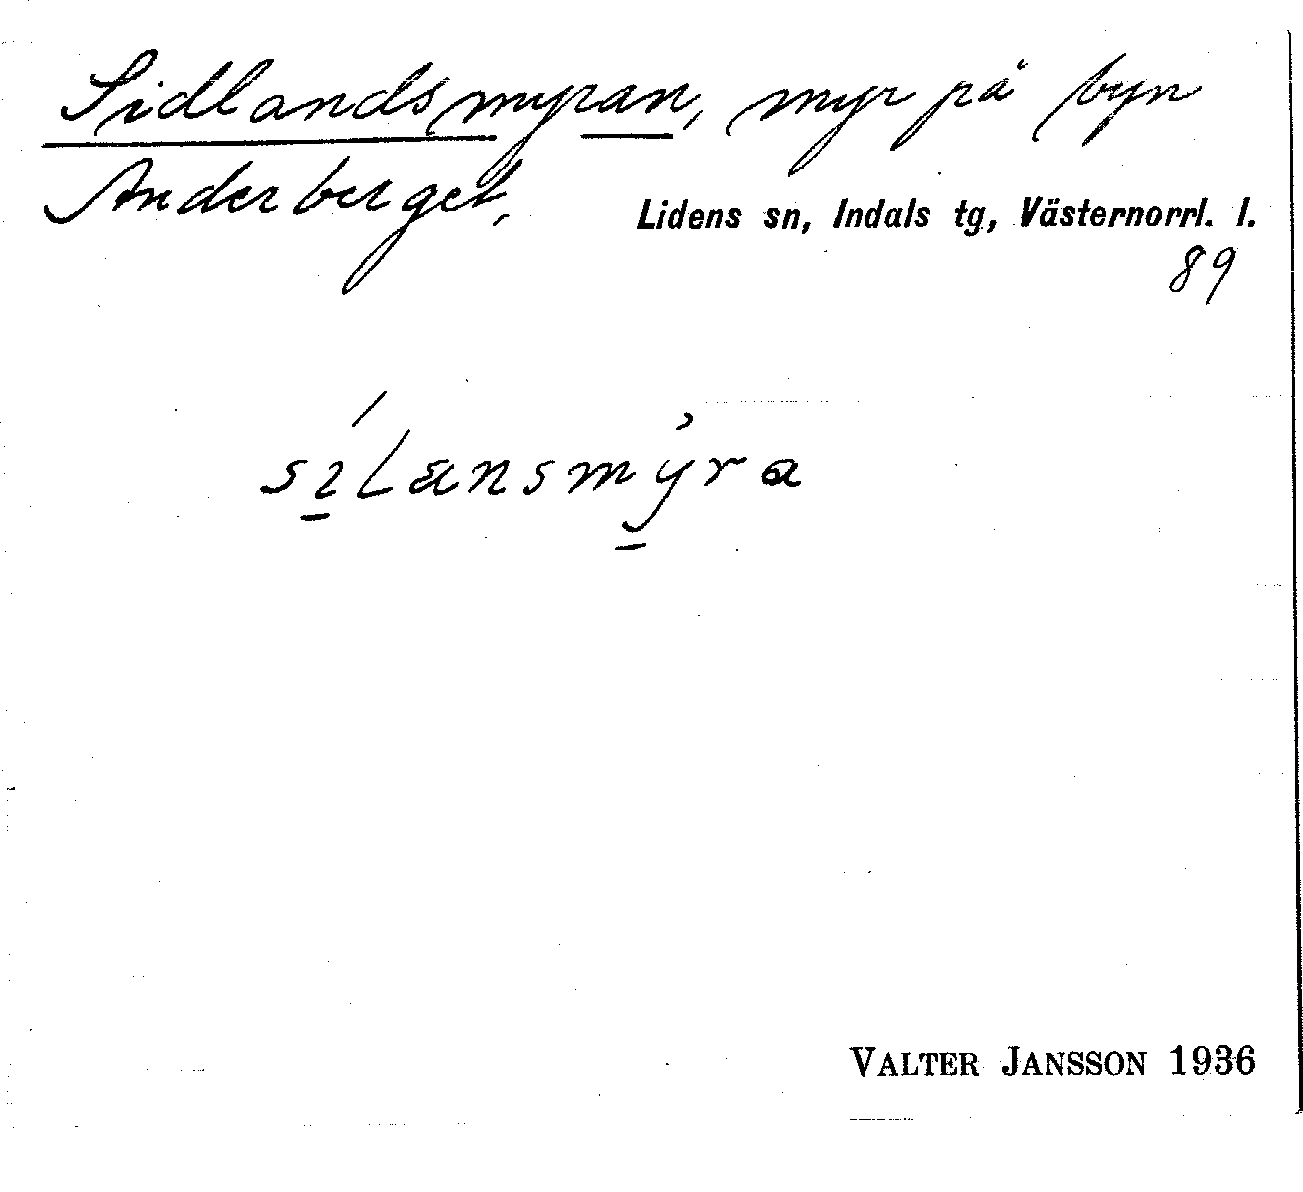 Sidlandsmyran, myr på byn
Anderberget,
Lidens sn, Indals tg, Västernorrl. l.
89
sı̱́Lansmỳ̱ra
VALTER JANSSON 1936